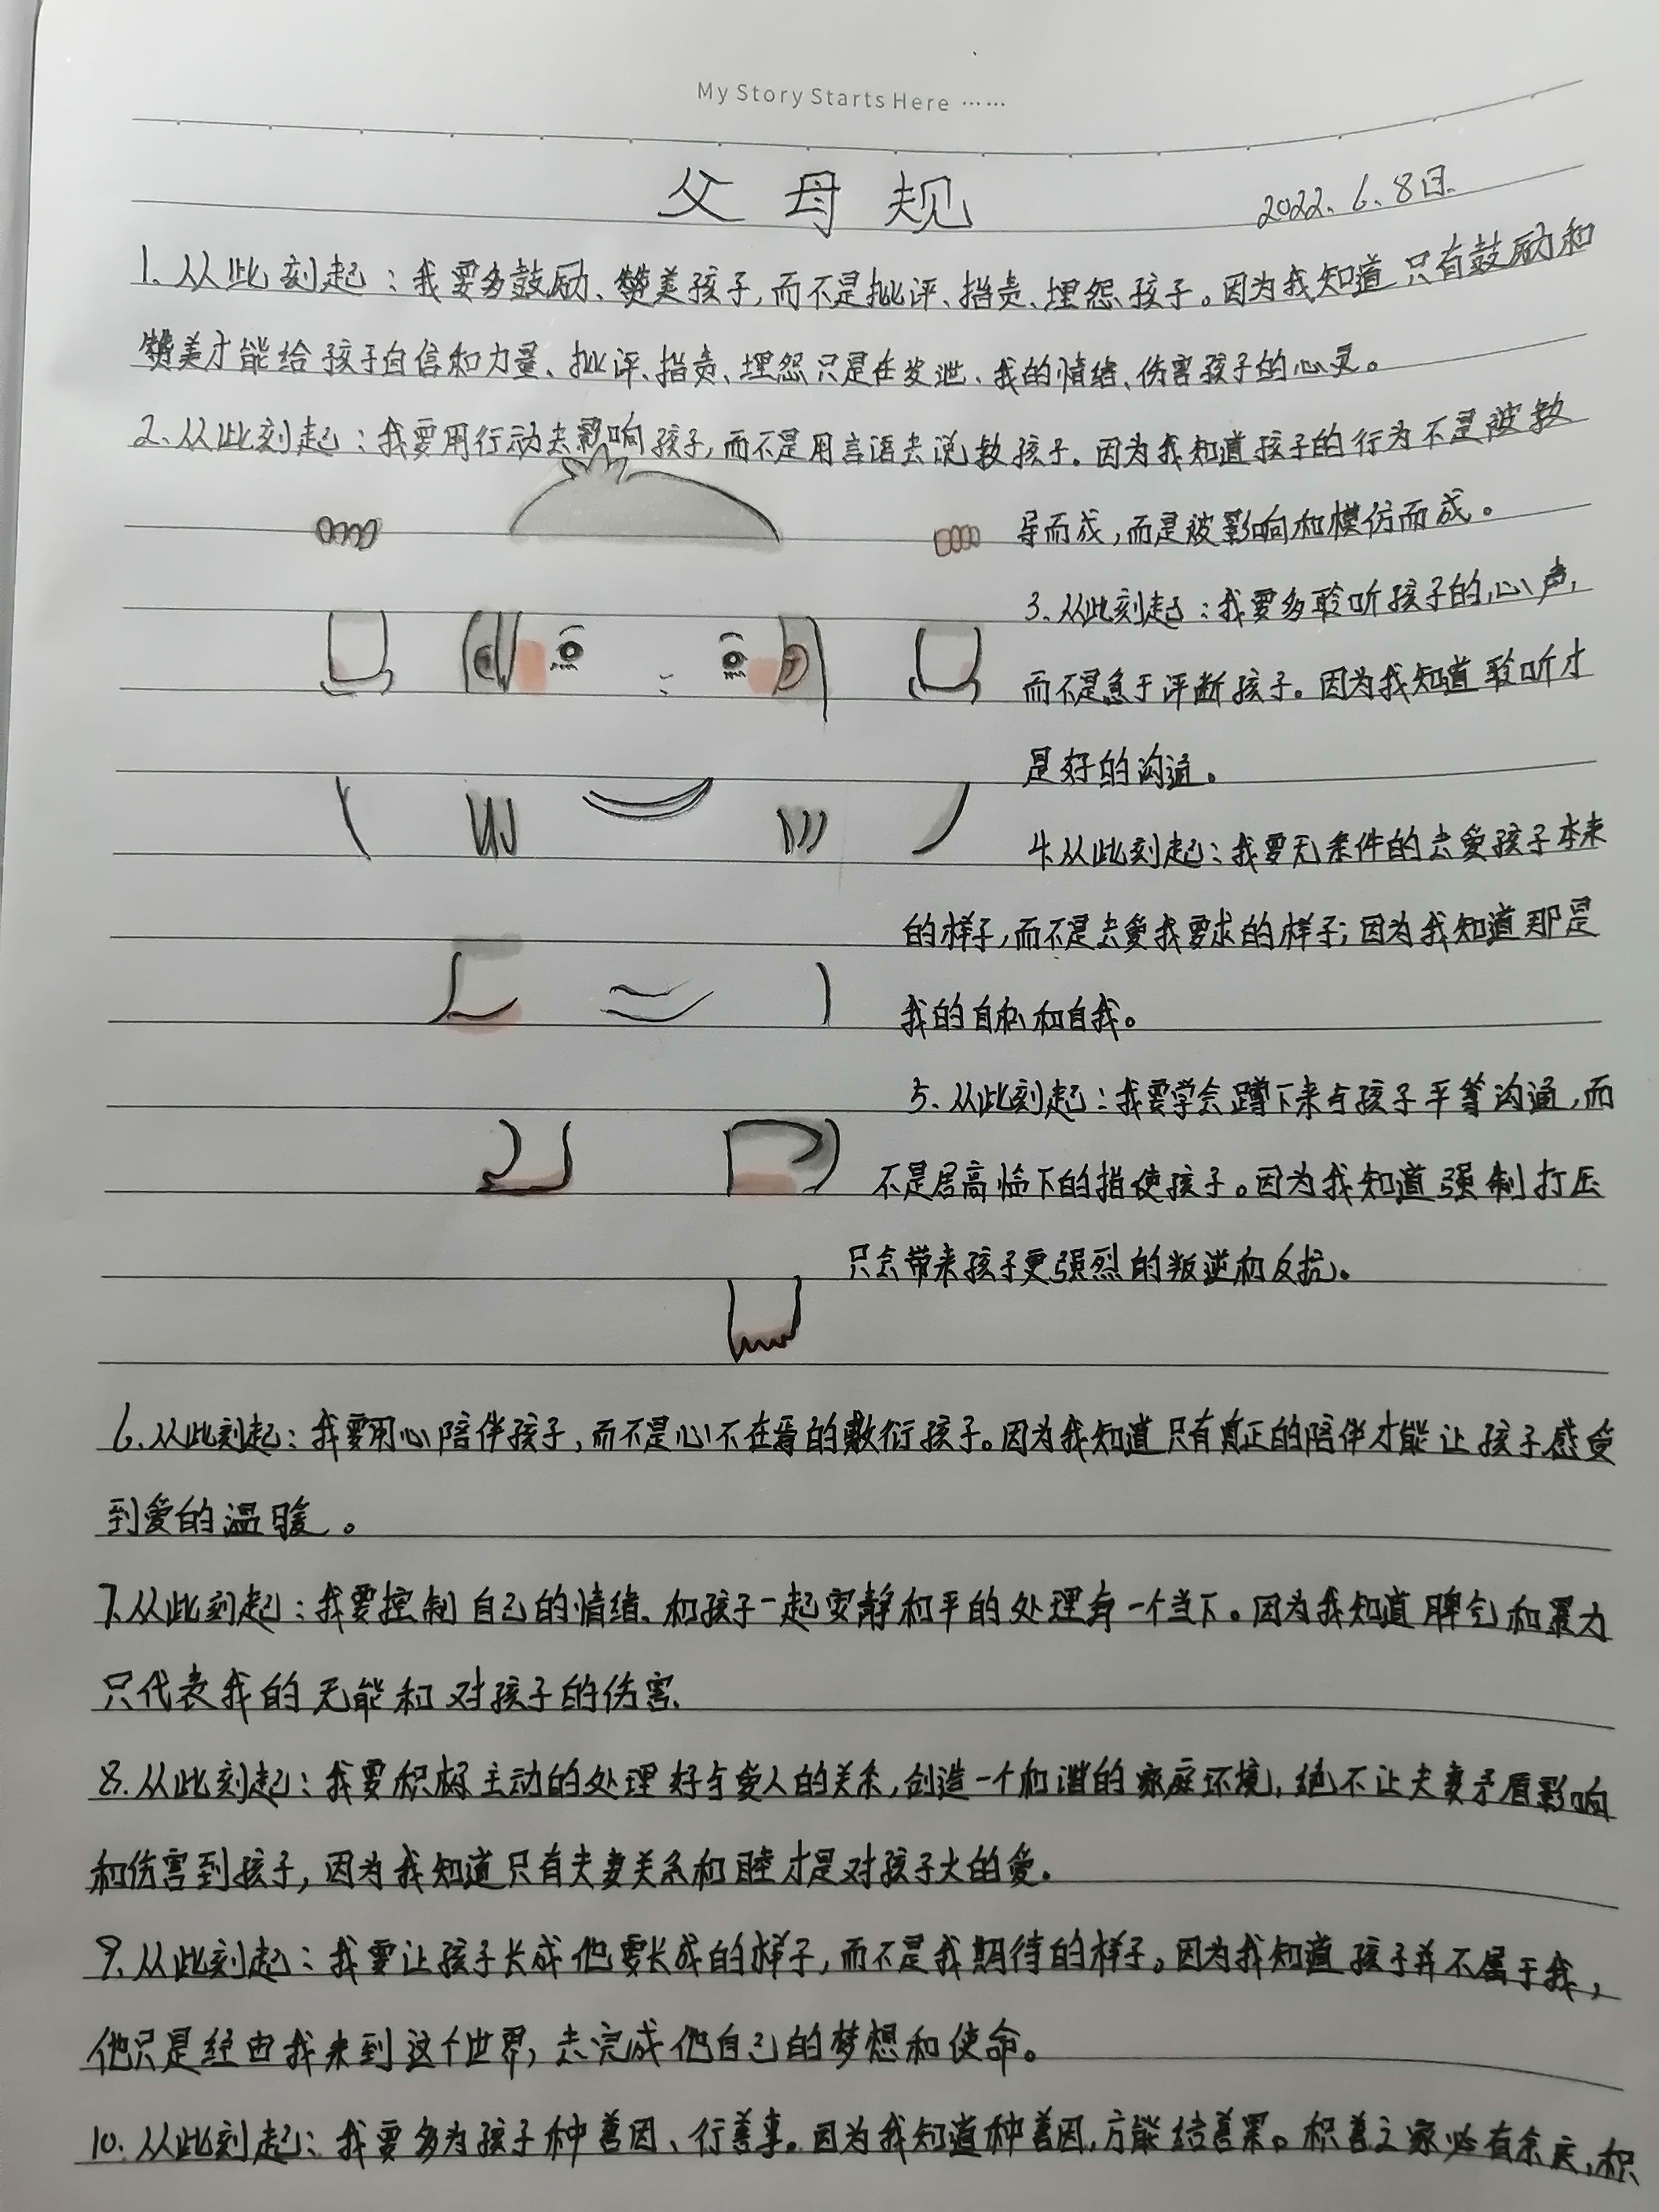 My Story Starts Here ……
父母规 2022.6.8日.
1.从此刻起:我要多鼓励、赞美孩子,而不是批评、指责、埋怨孩子。因为我知道只有鼓励和
赞美才能给孩子自信和力量、批评、指责、埋怨只是在发泄、我的情绪、伤害孩子的心灵。
2.从此刻起:我要用行动去影响孩子,而不是用言语去说教孩子.因为我知道孩子的行为不是被教
导而成,而是被影响和模仿而成。
3.从此刻起:我要多聆听孩子的心声,
而不是急于评断孩子。因为我知道聆听才
是好的沟通。
4.从此刻起:我要无条件的去爱孩子本来
的样子,而不是去爱我要求的样子;因为我知道那是
我的自私和自我。
5.从此刻起:我要学会蹲下来与孩子平等沟通,而
不是居高临下的指使孩子。因为我知道强制打压
只会带来孩子更强烈的叛逆和反抗。
6.从此刻起:我要用心陪伴孩子,而不是心不在焉的敷衍孩子。因为我知道只有真正的陪伴才能让孩子感受
到爱的温暖。
7.从此刻起:我要控制自己的情绪、和孩子一起安静和平的处理每一个当下。因为我知道脾气和暴力
只代表我的无能和对孩子的伤害.
8.从此刻起:我要积极主动的处理好与爱人的关系,创造一个和谐的家庭环境,绝不让夫妻矛盾影响
和伤害到孩子,因为我知道只有夫妻关系和睦才是对孩子大的爱.
9.从此刻起:我要让孩子长成他要长成的样子,而不是我期待的样子。因为我知道孩子并不属于我,
他只是经由我来到这个世界,去完成他自己的梦想和使命。
10.从此刻起:我要多为孩子种善因、行善事。因为我知道种善因,方能结善果。积善之家必有余庆,积